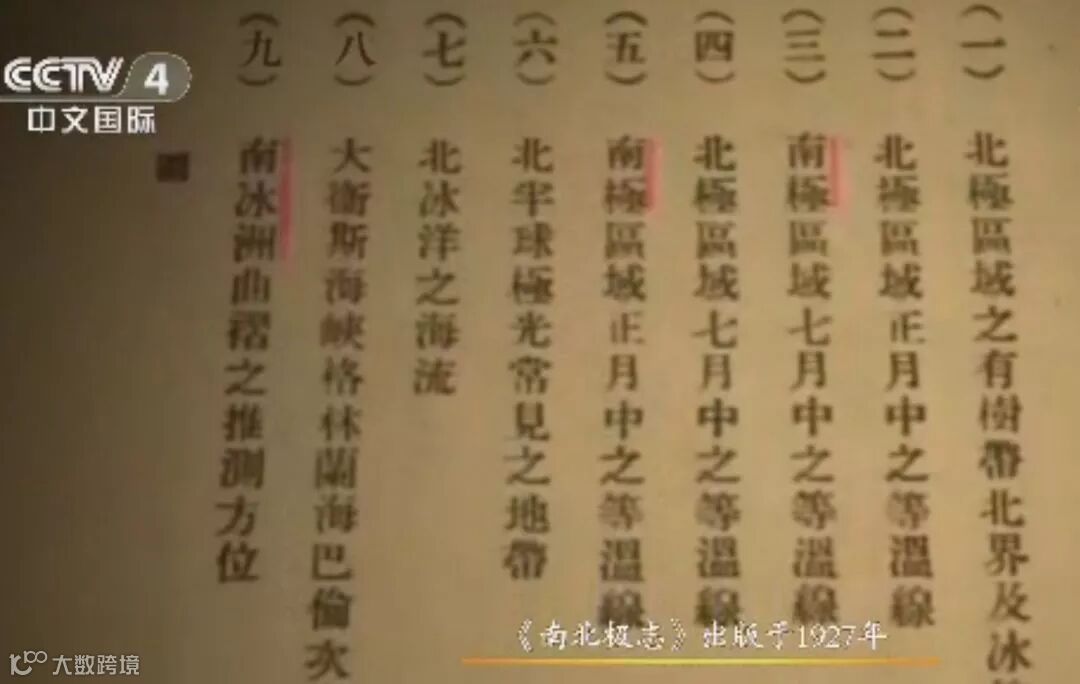 (一) 北極區域之有樹帶北界及冰
(二) 北極區域正月中之等溫線
(三) 南極區域七月中之等溫線
(四) 北極區域七月中之等溫線
(五) 南極區域正月中之等溫線
(六) 北半球極光常見之地帶
(七) 北冰洋之海流
(八) 大衛斯海峽格林蘭海巴倫次
(九) 南冰洲曲褶之推測方位
CCTV 4
中文国际
《南北极志》出版于1927年
大数跨境